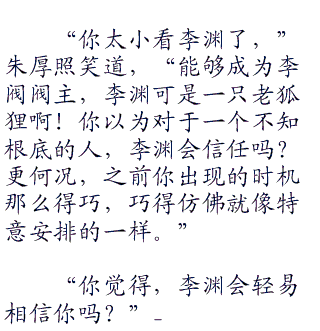 “你太小看李渊了，”
朱厚照笑道，“能够成为李
阀阀主，李渊可是一只老狐
狸啊！你以为对于一个不知
根底的人，李渊会信任吗？
更何况，之前你出现的时机
那么得巧，巧得仿佛就像特
意安排的一样。”
“你觉得，李渊会轻易
相信你吗？”